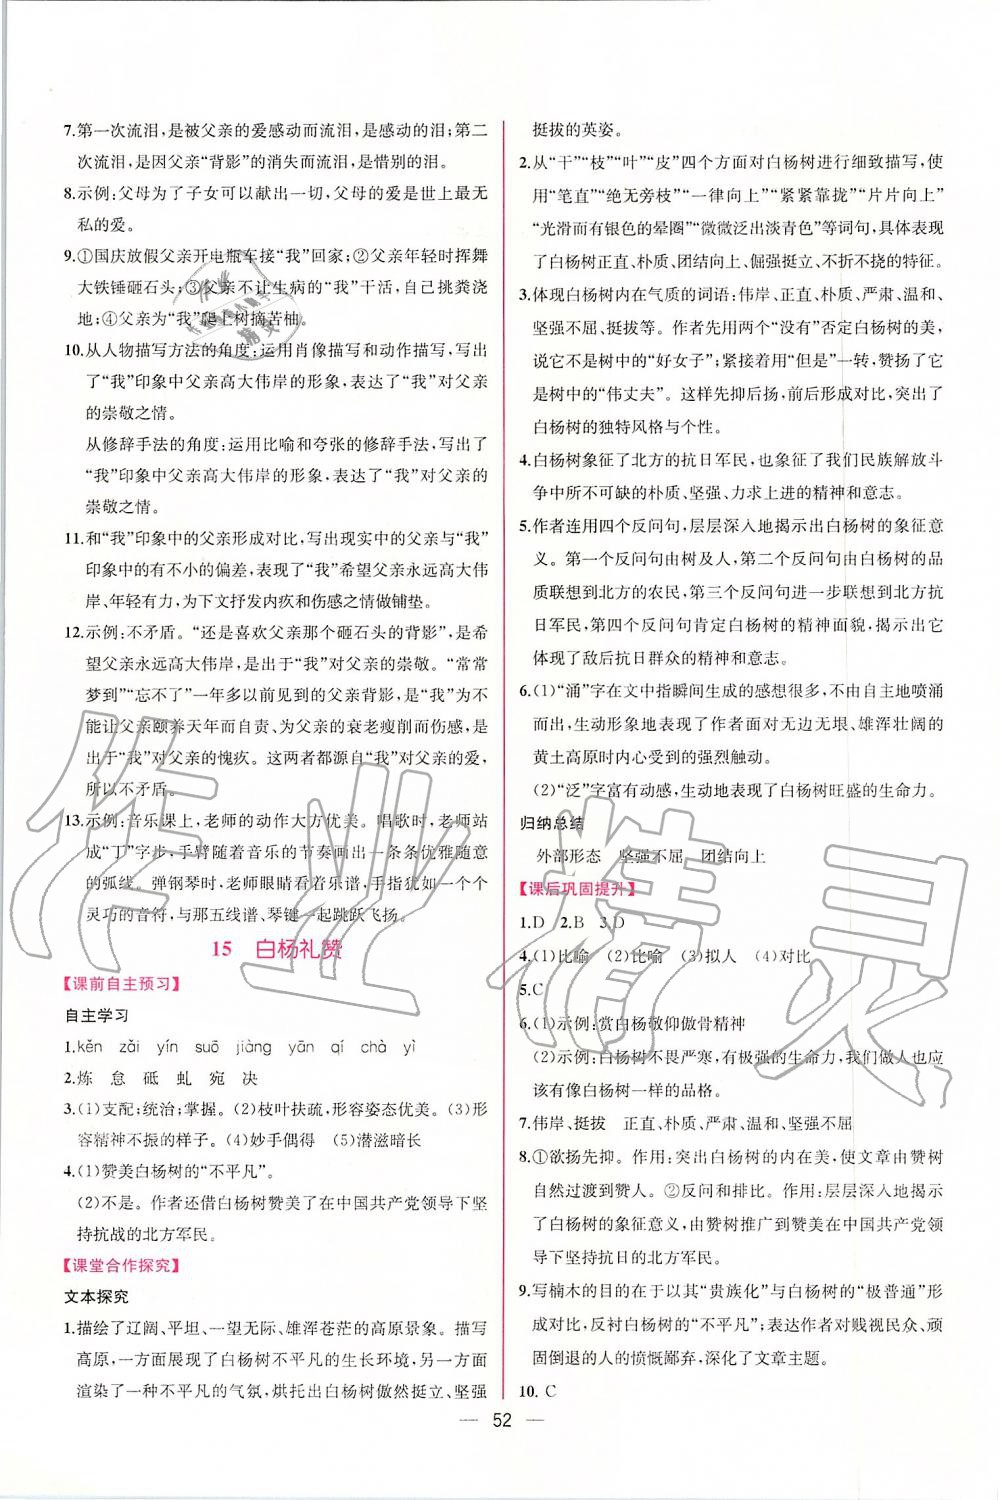 7.第一次流泪,是被父亲的爱感动而流泪,是感动的泪;第二
次流泪,是因父亲“背影”的消失而流泪,是惜别的泪。
8.示例:父母为了子女可以献出一切,父母的爱是世上最无
私的爱。
9.①国庆放假父亲开电瓶车接“我”回家;②父亲年轻时挥舞
大铁锤砸石头;③父亲不让生病的“我”干活,自己挑粪浇
地;④父亲为“我”爬上树摘苦柚。
10.从人物描写方法的角度:运用肖像描写和动作描写,写出
了“我”印象中父亲高大伟岸的形象,表达了“我”对父亲
的崇敬之情。
从修辞手法的角度:运用比喻和夸张的修辞手法,写出了
“我”印象中父亲高大伟岸的形象,表达了“我”对父亲的
崇敬之情。
11.和“我”印象中的父亲形成对比,写出现实中的父亲与“我”
印象中的有不小的偏差,表现了“我”希望父亲永远高大伟
岸、年轻有力,为下文抒发内疚和伤感之情做铺垫。
12.示例:不矛盾。“还是喜欢父亲那个砸石头的背影”,是希
望父亲永远高大伟岸,是出于“我”对父亲的崇敬。“常常
梦到”“忘不了”一年多以前见到的父亲背影,是“我”为不
能让父亲颐养天年而自责、为父亲的衰老瘦削而伤感,是
出于“我”对父亲的愧疚。这两者都源自“我”对父亲的爱,
所以不矛盾。
13.示例:音乐课上,老师的动作大方优美。唱歌时,老师站
成“丁”字步,手臂随着音乐的节奏画出一条条优雅随意
的弧线。弹钢琴时,老师眼睛看着乐谱,手指拨出一个个
灵巧的音符,与那五线谱、琴键一起跳跃飞扬。
15 白杨礼赞
【课前自主预习】
自主学习
1.kěn zǎi yín suō jiàng yān qí chà yì
2.炼 怠 砥 虬 宛 决
3.(1)支配;统治;掌握。(2)枝叶扶疏,形容姿态优美。(3)形
容精神不振的样子。(4)妙手偶得 (5)潜滋暗长
4.(1)赞美白杨树的“不平凡”。
(2)不是。作者还借白杨树赞美了在中国共产党领导下坚
持抗战的北方军民。
【课堂合作探究】
文本探究
1.描绘了辽阔、平坦、一望无际、雄浑苍茫的高原景象。描写
高原,一方面展现了白杨树不平凡的生长环境,另一方面
渲染了一种不平凡的气氛,烘托出白杨树傲然挺立、坚强
挺拔的英姿。
2.从“干”“枝”“叶”“皮”四个方面对白杨树进行细致描写,使
用“笔直”“绝无旁枝”“一律向上”“紧紧靠拢”“片片向上”
“光滑而有银色的晕圈”“微微泛出淡青色”等词句,具体表现
了白杨树正直、朴质、团结向上、倔强挺立、不折不挠的特征。
3.体现白杨树内在气质的词语:伟岸、正直、朴质、严肃、温和、
坚强不屈、挺拔等。作者先用两个“没有”否定白杨树的美,
说它不是树中的“好女子”;紧接着用“但是”一转,赞扬了它
是树中的“伟丈夫”。这样先抑后扬,前后形成对比,突出了
白杨树的独特风格与个性。
4.白杨树象征了北方的抗日军民,也象征了我们民族解放斗
争中所不可缺的朴质、坚强、力求上进的精神和意志。
5.作者连用四个反问句,层层深入地揭示出白杨树的象征意
义。第一个反问句由树及人,第二个反问句由白杨树的品
质联想到北方的农民,第三个反问句进一步联想到北方抗
日军民,第四个反问句肯定白杨树的精神面貌,揭示出它
体现了敌后抗日群众的精神和意志。
6.(1)“涌”字在文中指瞬间生成的感想很多,不由自主地喷涌
而出,生动形象地表现了作者面对无边无垠、雄浑壮阔的
黄土高原时内心受到的强烈触动。
(2)“泛”字富有动感,生动地表现了白杨树旺盛的生命力。
归纳总结
外部形态 坚强不屈 团结向上
【课后巩固提升】
1.D 2.B 3.D
4.(1)比喻 (2)比喻 (3)拟人 (4)对比
5.C
6.(1)示例:赏白杨敬仰傲骨精神
(2)示例:白杨树不畏严寒,有极强的生命力,我们做人也应
该有像白杨树一样的品格。
7.伟岸、挺拔 正直、朴质、严肃、温和、坚强不屈
8.①欲扬先抑。作用:突出白杨树的内在美,使文章由赞树
自然过渡到赞人。②反问和排比。作用:层层深入地揭示
了白杨树的象征意义,由赞树推广到赞美在中国共产党领
导下坚持抗日的北方军民。
9.写楠木的目的在于以其“贵族化”与白杨树的“极普通”形
成对比,反衬白杨树的“不平凡”;表达作者对贱视民众、顽
固倒退的人的愤慨鄙弃,深化了文章主题。
10. C
— 52 —
作业精灵